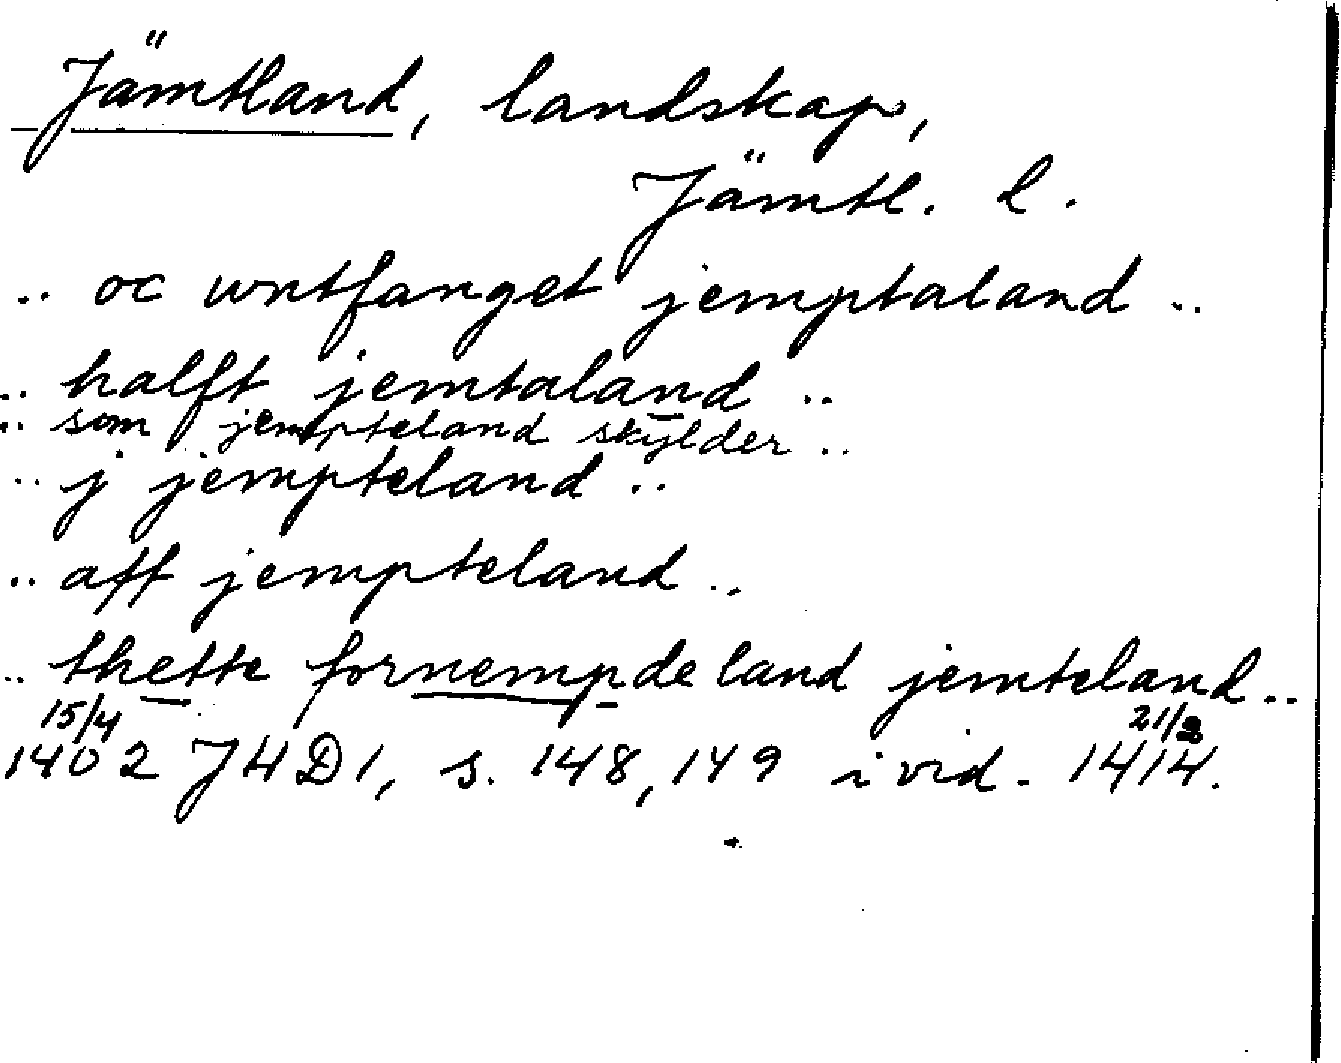 Jämtland, landskap,
Jämtl. l.
.. oc wntfanget jemptaland ..
.. halft jemtaland ..
.. som jempteland skylder ..
.. j jempteland ..
.. aff jempteland ..
.. thette fornempde land jemteland ..
15/4 21/2
1402 JHD1, s. 148, 149 i vid. 1414.